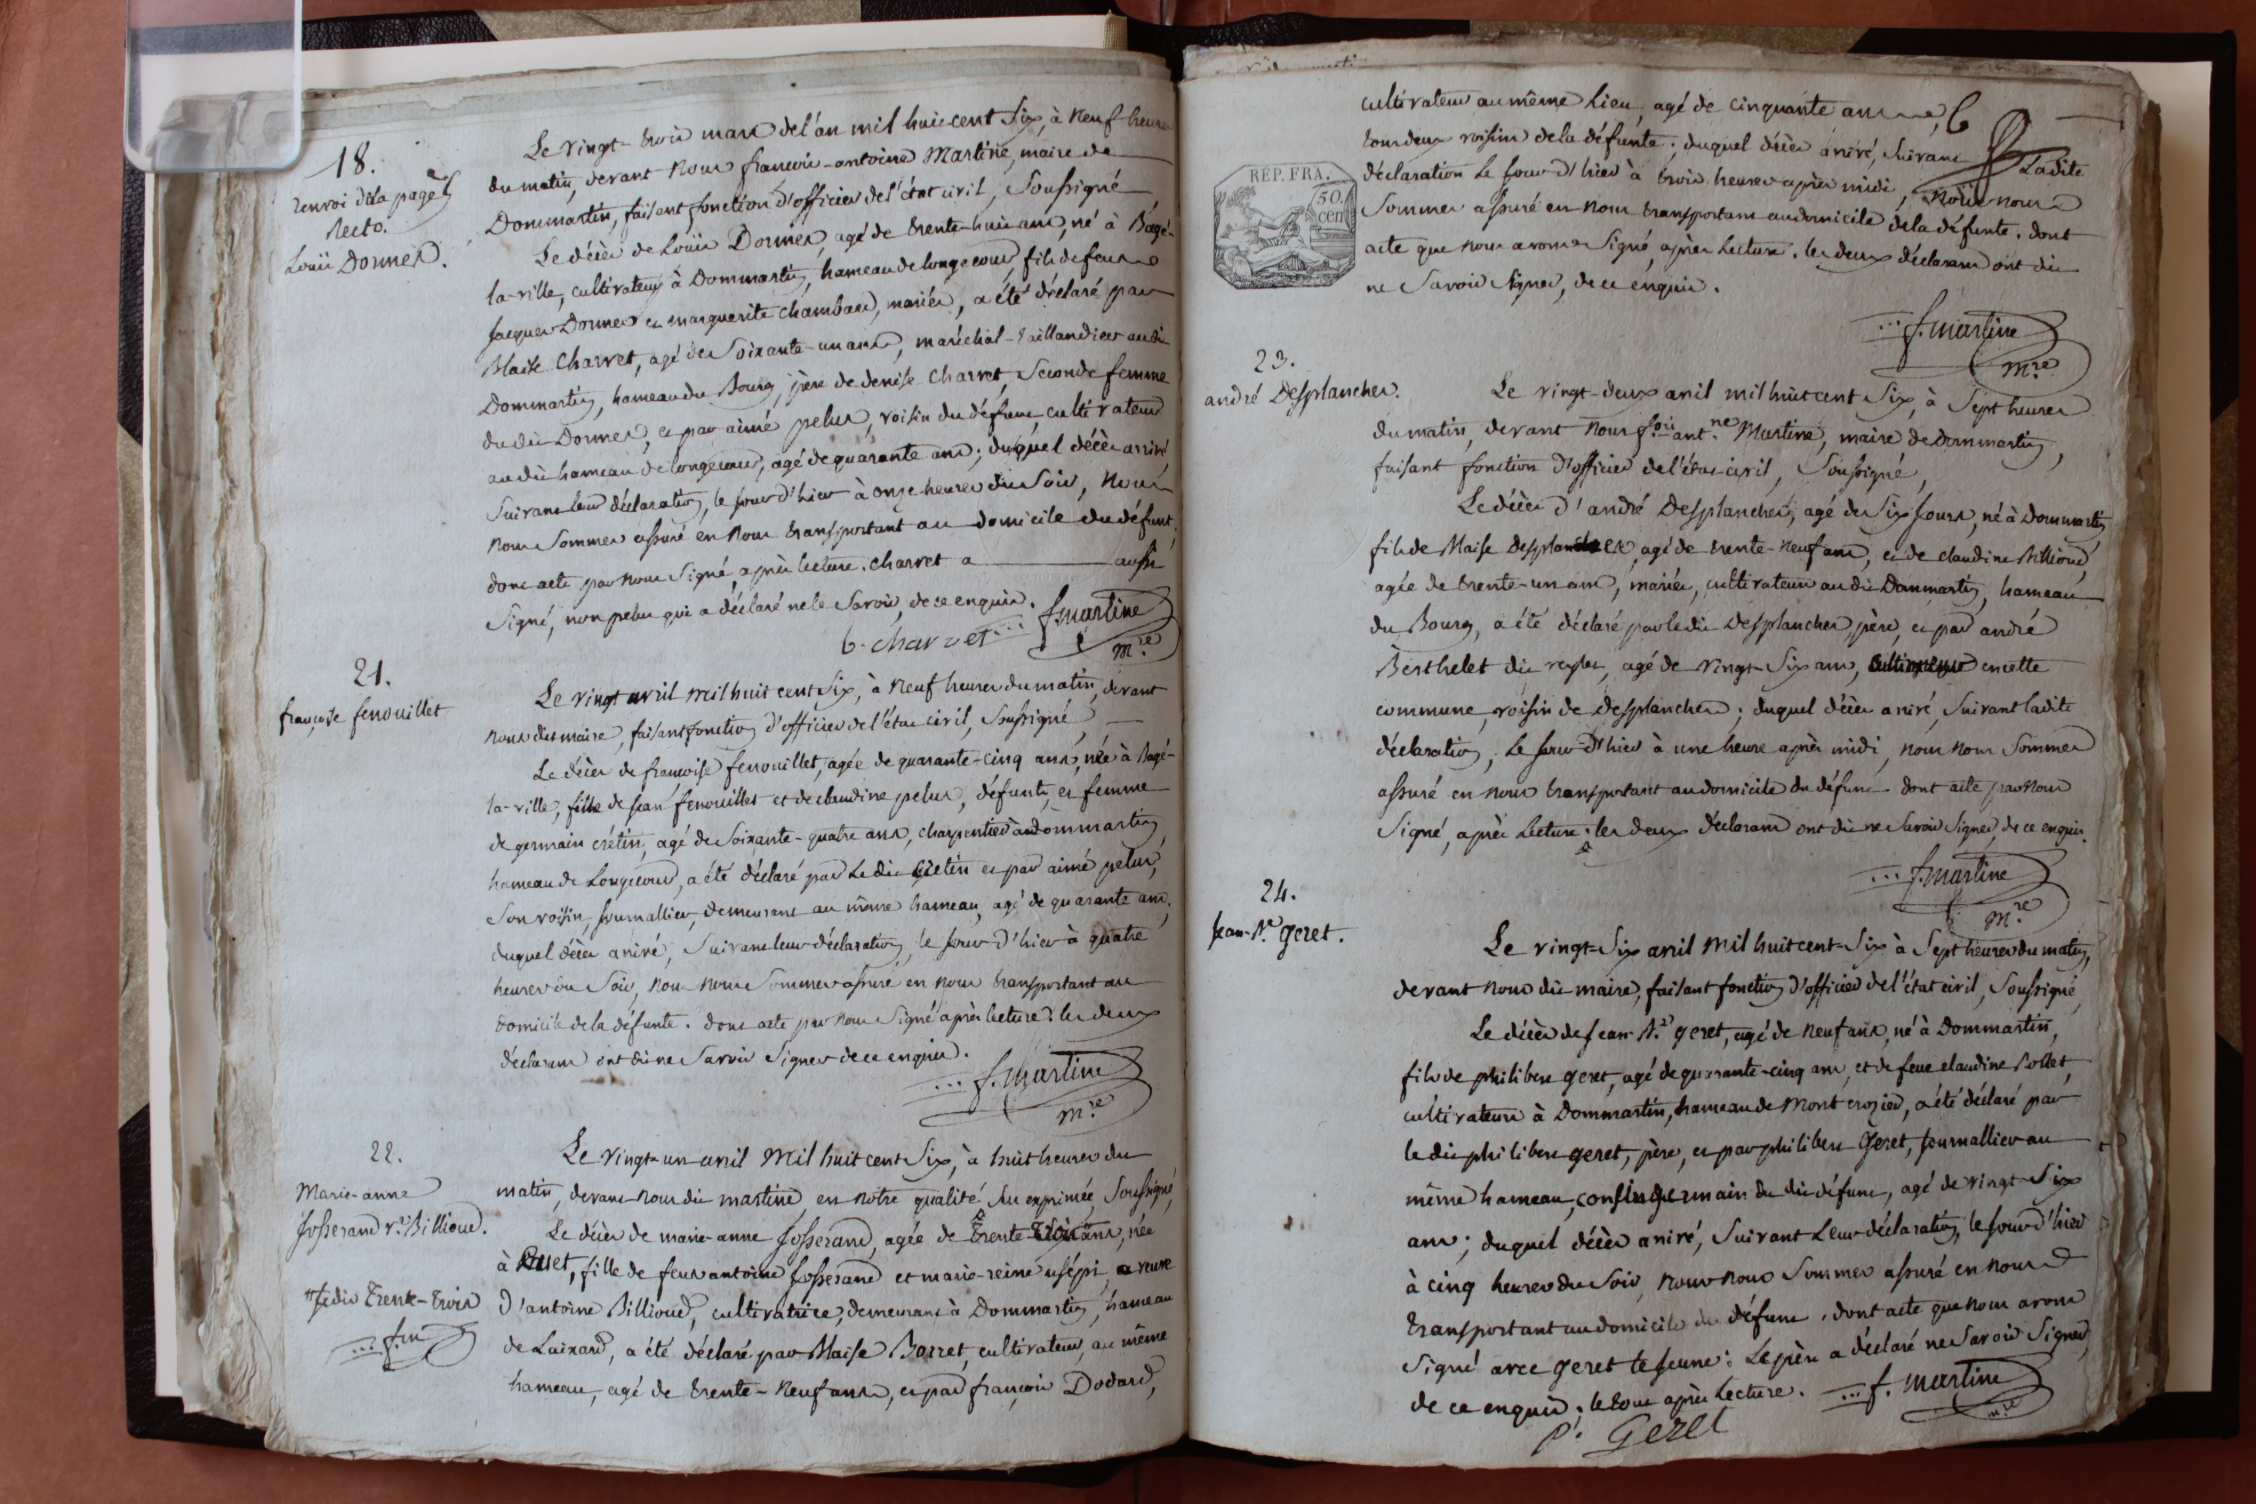 18.
renvoi de la page 5
Recto.
Louis Dormer.
Le vingt-trois mars de l'an mil huit cent Six, à Neuf heures
du matin, devant Nous françois-antoine Martine, maire de
Dommartin, faisant fonction d'officier de l'état civil, Soussigné
Le décès de Louis Dormer, agé de trente-huit ans, né à Bagé-
la-ville, cultivateur à Dommartin, hameau de longecour, fils de feus
Jacques Dormer et marguerite chambard, mariés, a été déclaré par
Blaise Charvet, agé de Soixante-un ans, maréchal-taillandier audit
Dommartin, hameau du Bourg, père de denise Charvet, Seconde femme
du dit Dormer, et par aimé pelus, voisin du défunt, cultivateur
au dit hameau de longecour, agé de quarante ans; duquel décès arrivé,
Suivant leur déclaration, le jour d'hier à onze heures du Soir, Nous
nous Sommes assuré en Nous transportant au domicile du défunt,
dont acte par Nous Signé, après lecture. charvet a aussi
Signé, non pelus qui a déclaré ne le Savoir, de ce enquis.
b. charvet f. martine
m.re
21.
françoise fenouillet
Le vingt avril mil huit cent Six, à Neuf heures du matin, devant
nous dit maire, faisant fonction d'officier de l'état civil, Soussigné,
Le décès de françoise fenouillet, agée de quarante-cinq ans, née à Bagé-
la-ville, fille de jean fenouillet et de claudine pelus, défunts, et femme
de germain crétin, agé de Soixante-quatre ans, charpentier à dommartin,
hameau de Longecour, a été déclaré par Le dit Crétin et par aimé pelus,
Son voisin, journallier, demeurant au même hameau, agé de quarante ans,
duquel décès arrivé, Suivant leur déclaration, le jour d'hier à quatre
heures du Soir, Nous nous Sommes assuré en nous transportant au
domicile de la défunte. dont acte par nous Signé après lecture: les deux
déclarans ont dit ne Savoir Signer de ce enquis.
f. martine
m.re
22.
Marie-anne
Josserand v.e Billioud.
Le vingt-un avril Mil huit cent Six, à huit heures du
matin, devant nous dit martine, en notre qualité Sus exprimée, Soussigné,
Le décès de marie-anne Josserand, agée de trente-trois ans, née
à fille de feus antoine Josserand et marie-reine veuve
d'antoine Billioud, cultivatrice, demeurant à Dommartin, hameau
je dis trente-trois
f.m
de Laixard, a été déclaré par Blaise Borret, cultivateur, au même
hameau, agé de trente-Neuf ans, et par françois Dodard,
cultivateur au même Lieu, agé de cinquante ans 6
tous deux voisins de la défunte; duquel décès arrivé, Suivant Ladite
déclaration Le jour d'hier à trois heures après midi, Nous nous
Sommes assuré en Nous transportant au domicile de la défunte. dont
acte que nous avons Signé, après Lecture. les deux déclarans ont dit
ne Savoir Signer, de ce enquis.
RÉP. FRA.
50.
cen
f. martine
m.re
23.
andré Desplanches.
Le vingt-deux avril mil huit cent Six, à Sept heures
du matin, devant Nous f.ois ant.ne Martine, maire de dommartin,
faisant fonction d'officier de l'état civil, Soussigné,
Le décès d'andré Desplanches, agé de Six jours, né à Dommartin,
fils de Blaise Desplanches, agé de trente-Neuf ans, et de claudine Billioud,
agée de trente-un ans, mariés, cultivateurs au dit Dommartin, hameau
du Bourg, a été déclaré par le dit Desplanches, père, et par andré
Berthelet dit agé de vingt-Six ans, cultivateur en cette
commune, voisin de Desplanches; duquel décès arrivé, Suivant ladite
déclaration, Le jour d'hier à une heure après midi, nous nous Sommes
assuré en nous transportant au domicile du défunt. dont acte par Nous
Signé, après Lecture; les deux déclarans ont dit ne Savoir Signer, de ce enquis.
f. martine
m.re
24.
jean-B.te geret.
Le vingt-Six avril Mil huit cent-Six à Sept heures du matin,
devant nous dit maire, faisant fonction d'officier de l'état civil, Soussigné,
Le décès de jean-B.te geret, agé de Neuf ans, né à Dommartin,
fils de philibert geret, agé de quarante-cinq ans, et de feue claudine Pollet,
cultivateurs à Dommartin, hameau de Mont crozier, a été déclaré par
le dit philibert geret, père, et par philibert Geret, journallier au
même hameau, cousin germain du dit défunt, agé de vingt-Six
ans; duquel décès arrivé, Suivant Leur déclaration, le jour d'hier
à cinq heures du Soir, nous nous Sommes assuré en nous
transportant au domicile du défunt, dont acte que nous avons
Signé avec geret le jeune: Le père a déclaré ne Savoir Signer,
de ce enquis; le tout après Lecture. f. martine
m.re
p. Geret